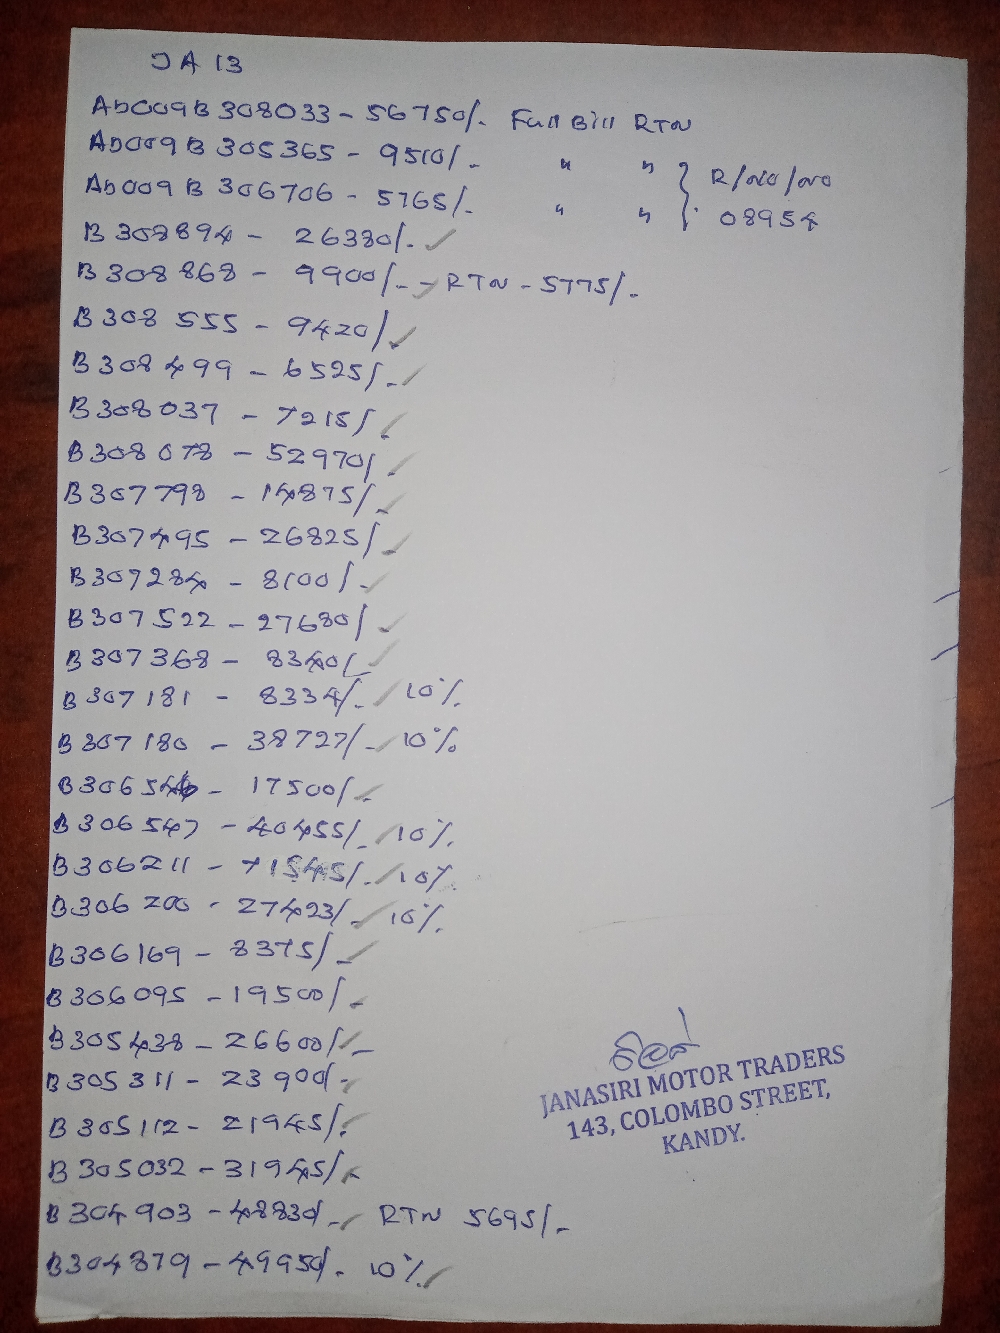 JA 13
AD009B 308033 - 56750/- Full Bill RTN
AD009B 305365 - 9510/- " " } R/No/No
AD009B 306706 - 5765/- " " } 08954
B 308894 - 26380/- ✓
B 308868 - 9900/- ✓ RTN - 5775/-
B 308555 - 9420/- ✓
B 308499 - 6525/- ✓
B 308037 - 7215/- ✓
B 308078 - 52970/- ✓
B 307798 - 14875/- ✓
B 307495 - 26825/- ✓
B 307284 - 8100/- ✓
B 307522 - 27680/- ✓
B 307368 - 8340/- ✓
B 307181 - 8334/- ✓ 10%
B 307180 - 38727/- ✓ 10%
B 306546 - 17500/- ✓
B 306547 - 40455/- ✓ 10%
B 306211 - 71545/- ✓ 10%
B 306200 - 27423/- ✓ 10%
B 306169 - 8375/- ✓
B 306095 - 19500/- ✓
B 305438 - 26600/- ✓
B 305311 - 23900/- ✓
B 305112 - 21945/- ✓
B 305032 - 31945/- ✓
B 304903 - 48830/- ✓ RTN 5695/-
B 304879 - 49950/- 10% ✓
JANASIRI MOTOR TRADERS
143, COLOMBO STREET,
KANDY.